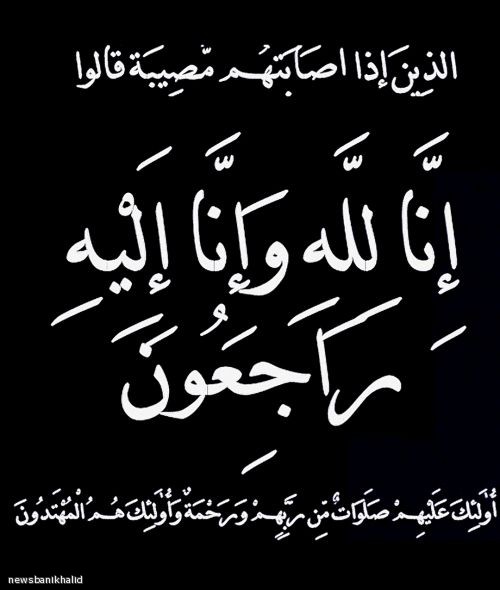 الذِينَ إذا اصَابَتهُم مّصِيبَة قالوا
إِنَّا لِلَّه وَإِنَّا إِلَيْهِ
رَاجِعُونَ
أُوْلَئِكَ عَلَيهِمْ صَلَوَاتٌ مِّن رَبِّهِمْ وَرَحْمَةٌ وَأُوْلَئِكَ هُمُ الْمُهْتَدُونَ
newsbanikhalid